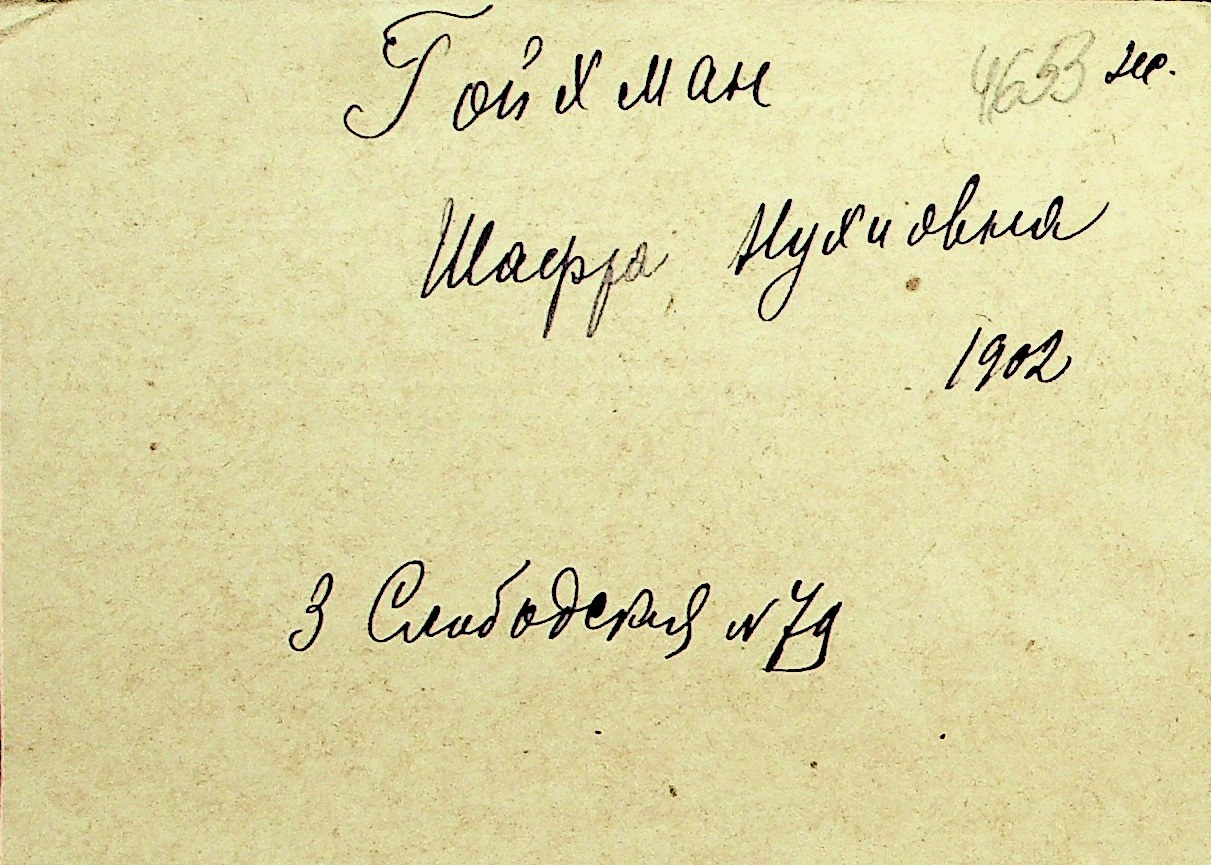 Гойхман 4653 же.
Шафра Нухиовна
1902
3 Слободская N 79